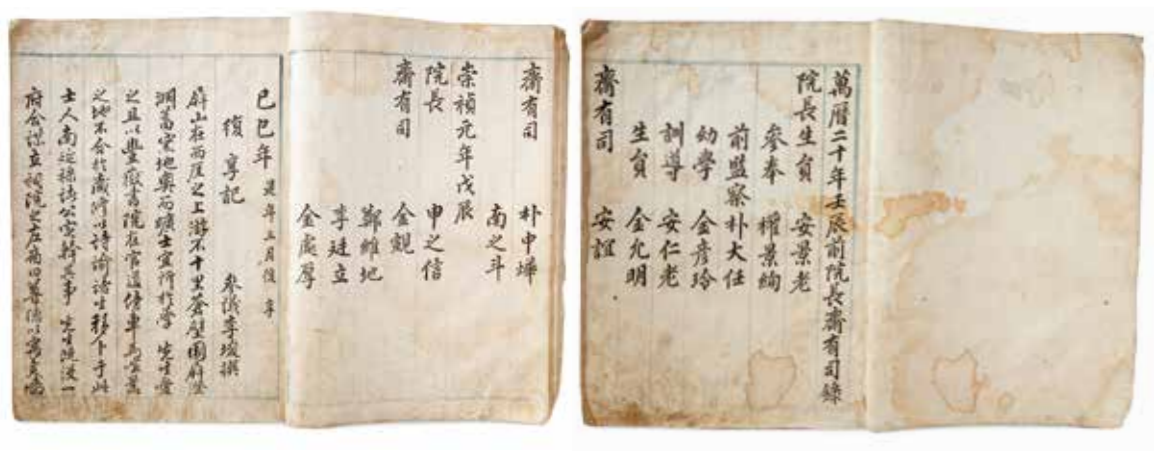 萬曆二十年壬辰前院長齋有司錄
院長生員 安景老
參奉 權景絢
前監察 朴大任
幼學 金彦玲
訓導 安仁老
生員 金允明
齋有司 安誼
齋有司 朴中燁
南之斗
崇禎元年戊辰
院長 申之信
齋有司 金覬
鄭維地
李廷立
金處厚
己巳年 是年三月復享
復享記 參議李埈撰
屛山在西厓之上游不十里蒼壁圍屛
地奥而曠士宜所於學 先生愛
之且以豐嶽書院在官道傍車馬
之地不合於藏修以詩諭諸生移卜于此
士人南 諸公實幹其事 先生既沒一
府合謀立祠院之左扁曰尊德以寓